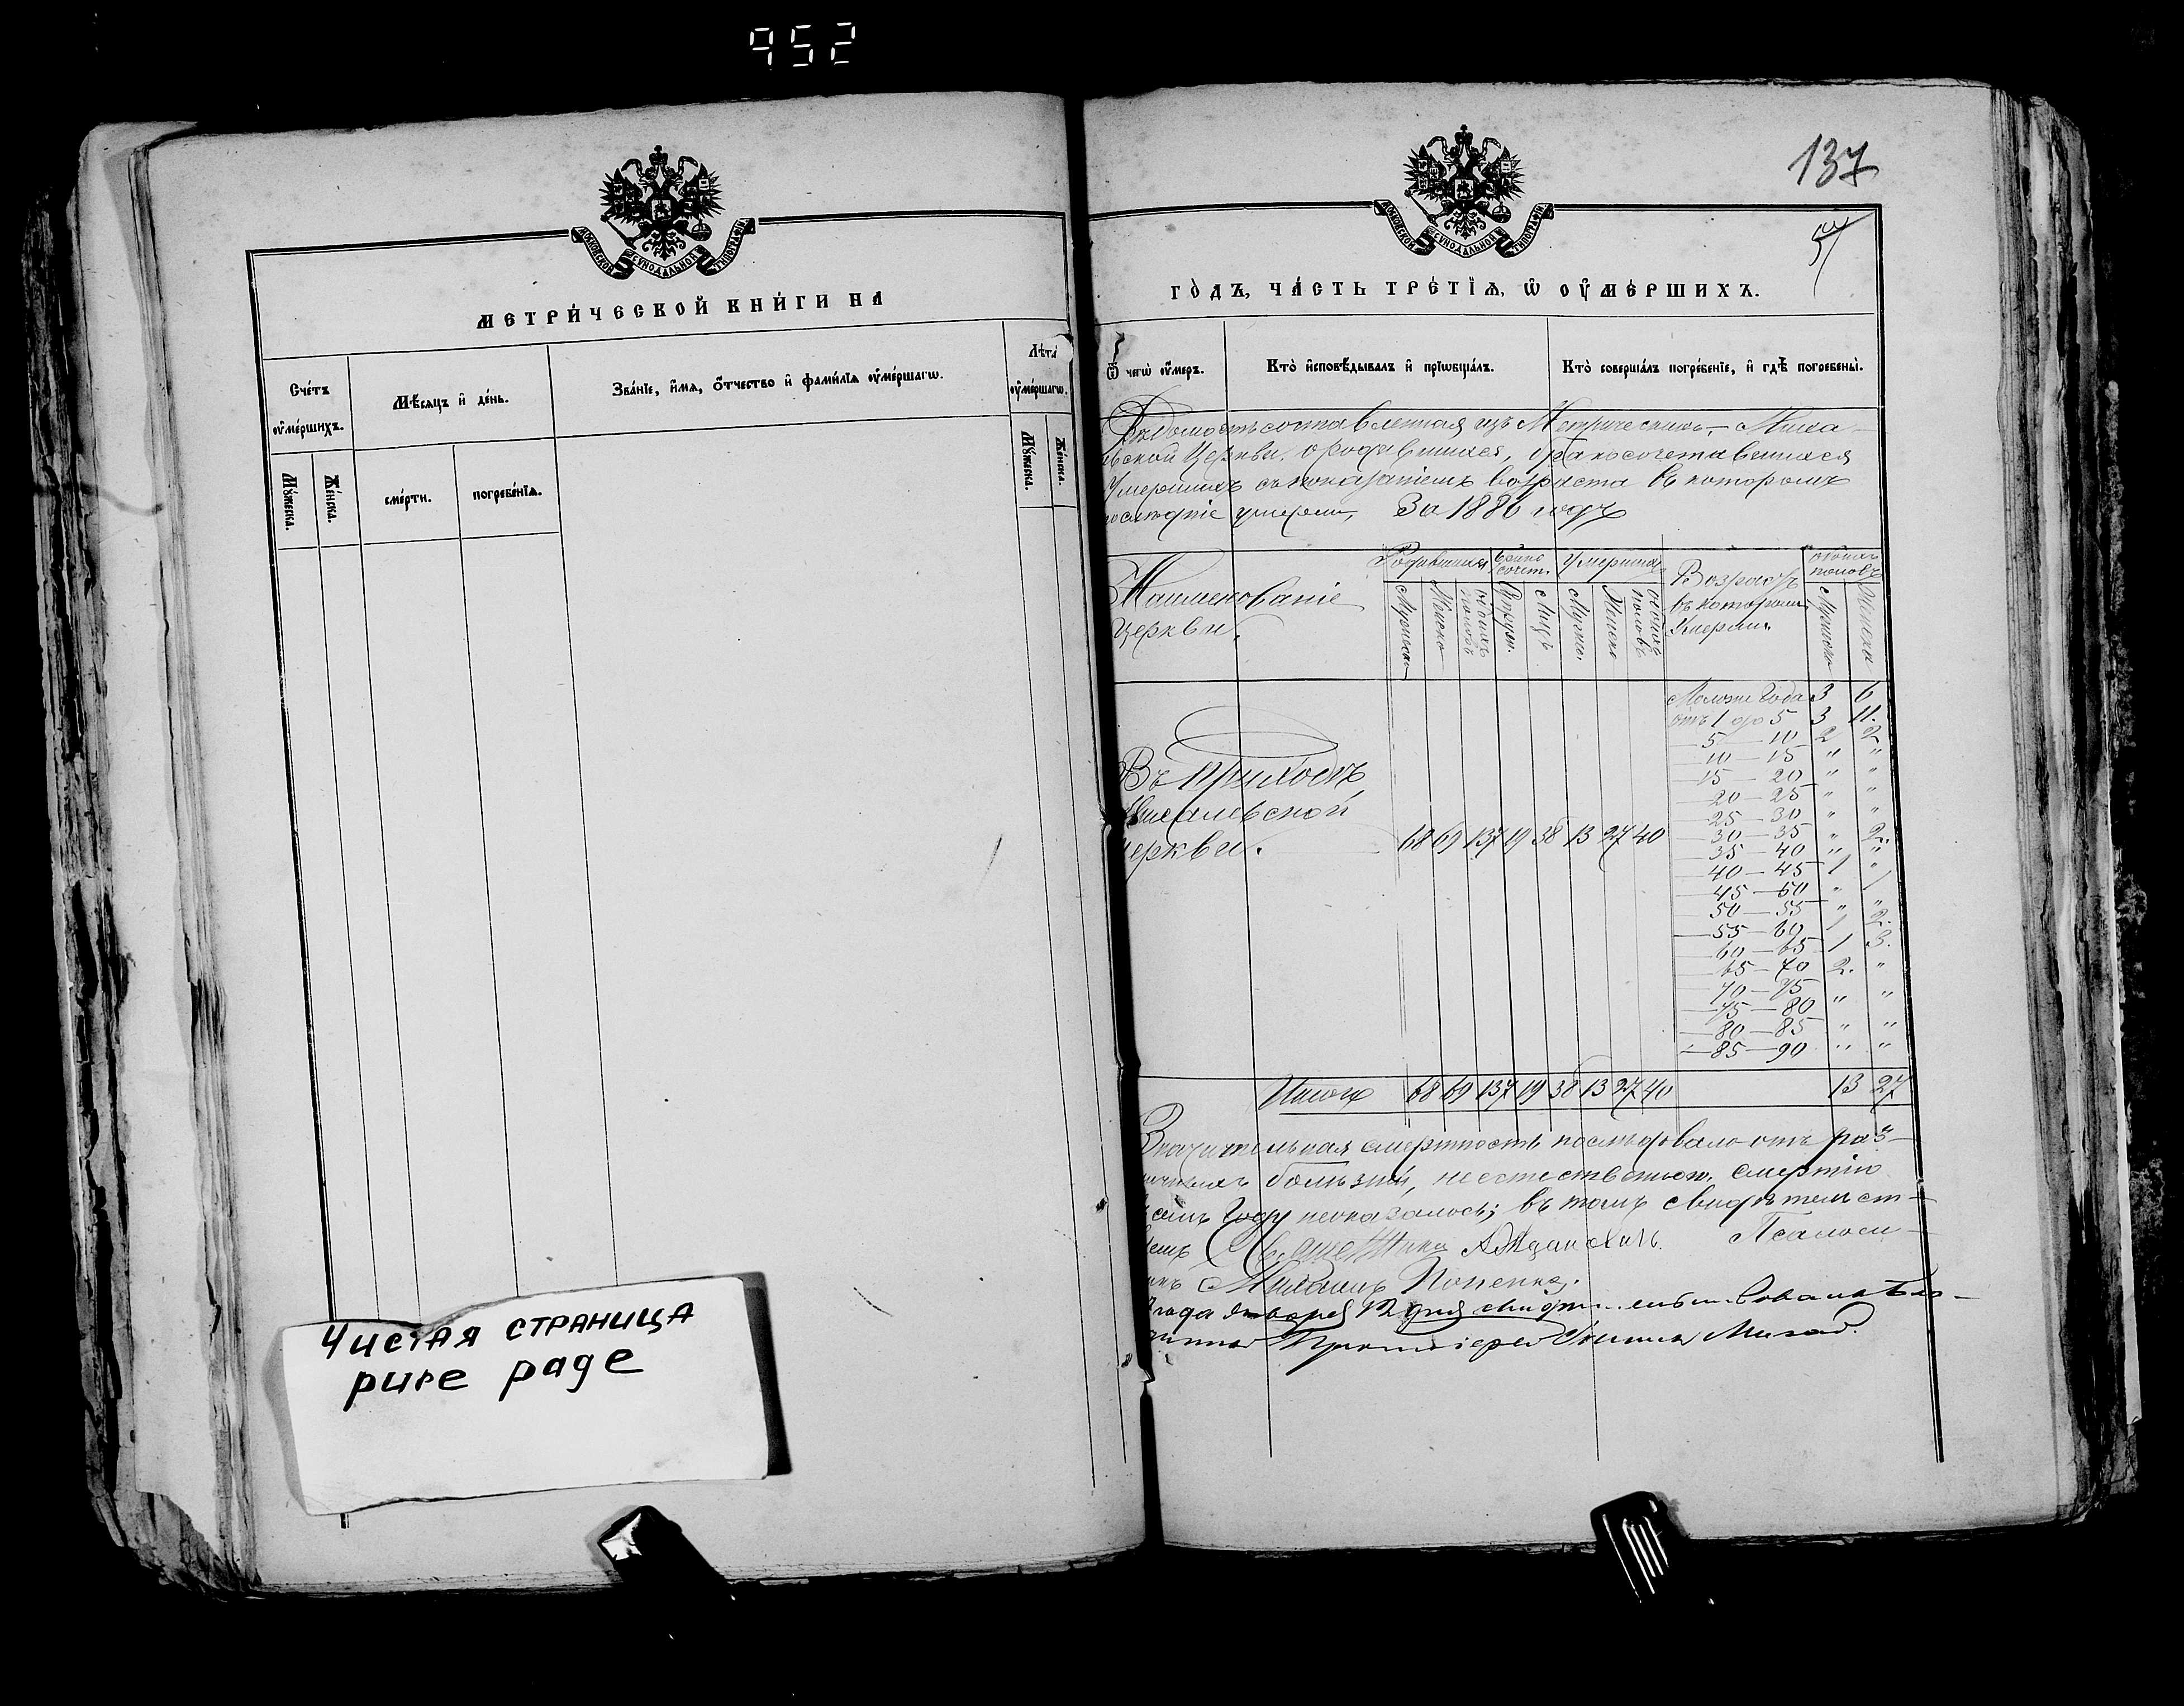 952
МОСКОВСКОЙ СѴНОДАЛЬНОЙ ТИПОГРАФІИ
МЕТРИ́ЧЕСКОЙ КНИ́ГИ НА
Счётъ ᲂу҆ме́ршихъ.
Мѣ́сяцъ и҆ де́нь.
Зва́нїе, и҆́мѧ, ѻ҆́тчество и҆ фами́лїѧ ᲂу҆ме́ршагѡ.
Лѣ́та ᲂу҆ме́ршагѡ.
Му́жеска.
Же́нска.
сме́рти.
погребе́нїѧ.
Му́жеска.
Же́нска.
Чистая страница
pure page
137
МОСКОВСКОЙ СѴНОДАЛЬНОЙ ТИПОГРАФІИ
ГО́ДЪ, ЧА́СТЬ ТРЕ́ТЇѦ, Ѡ҆ ОУ҆МЕ́РШИХЪ.
Ѿ чегѡ̀ ᲂу҆́меръ.
Кто̀ и҆сповѣ́дывалъ и҆ прїѡбща́лъ.
Кто̀ соверша́лъ погребе́нїе, и҆ гдѣ̀ погребены̀.
Вѣдомость составленная изъ Метрическихъ, Миха-
вской Церкви. о родившихся, бракосочетавшихся
Умершихъ съ показаніемъ возраста въ которомъ
послѣдніе умерли, За 1880 годъ
Наименованіе
Церкви.
Родившихся
Умершихъ
Возрастъ
въ которомъ
Умерли.
обоихъ
половъ
Мужеска
Женска
обоихъ половъ
Лицъ
Мужеска
Женска
обоихъ половъ
Мужеска
Женска
Въ приходѣ
Михалевской
церкви.
68 69 137 19 38 13 27 40
Моложе Года 3 6
отъ 1 до 5 3 11.
5 — 10 2 2
10 — 15 " "
15 — 20 " "
20 — 25 " "
25 — 30 " "
30 — 35 " 2.
35 — 40 " "
40 — 45 1 "
45 — 50 " 1
50 — 55 " "
55 — 60 1 2.
60 — 65 1 3.
65 — 70 2. "
70 — 75
75 — 80 " "
80 — 85 " "
85 — 90 " "
Итого 68 69 137 19 38 13 27 40 13 27
Значительная смертность послѣдовало отъ раз-
болѣзній, неестественою. смертію
семъ Году неоказалось; въ томъ свидѣтельст-
Священникъ Псалом-
Михаилъ Попенко.
года Января 12 дня
Протоіерей